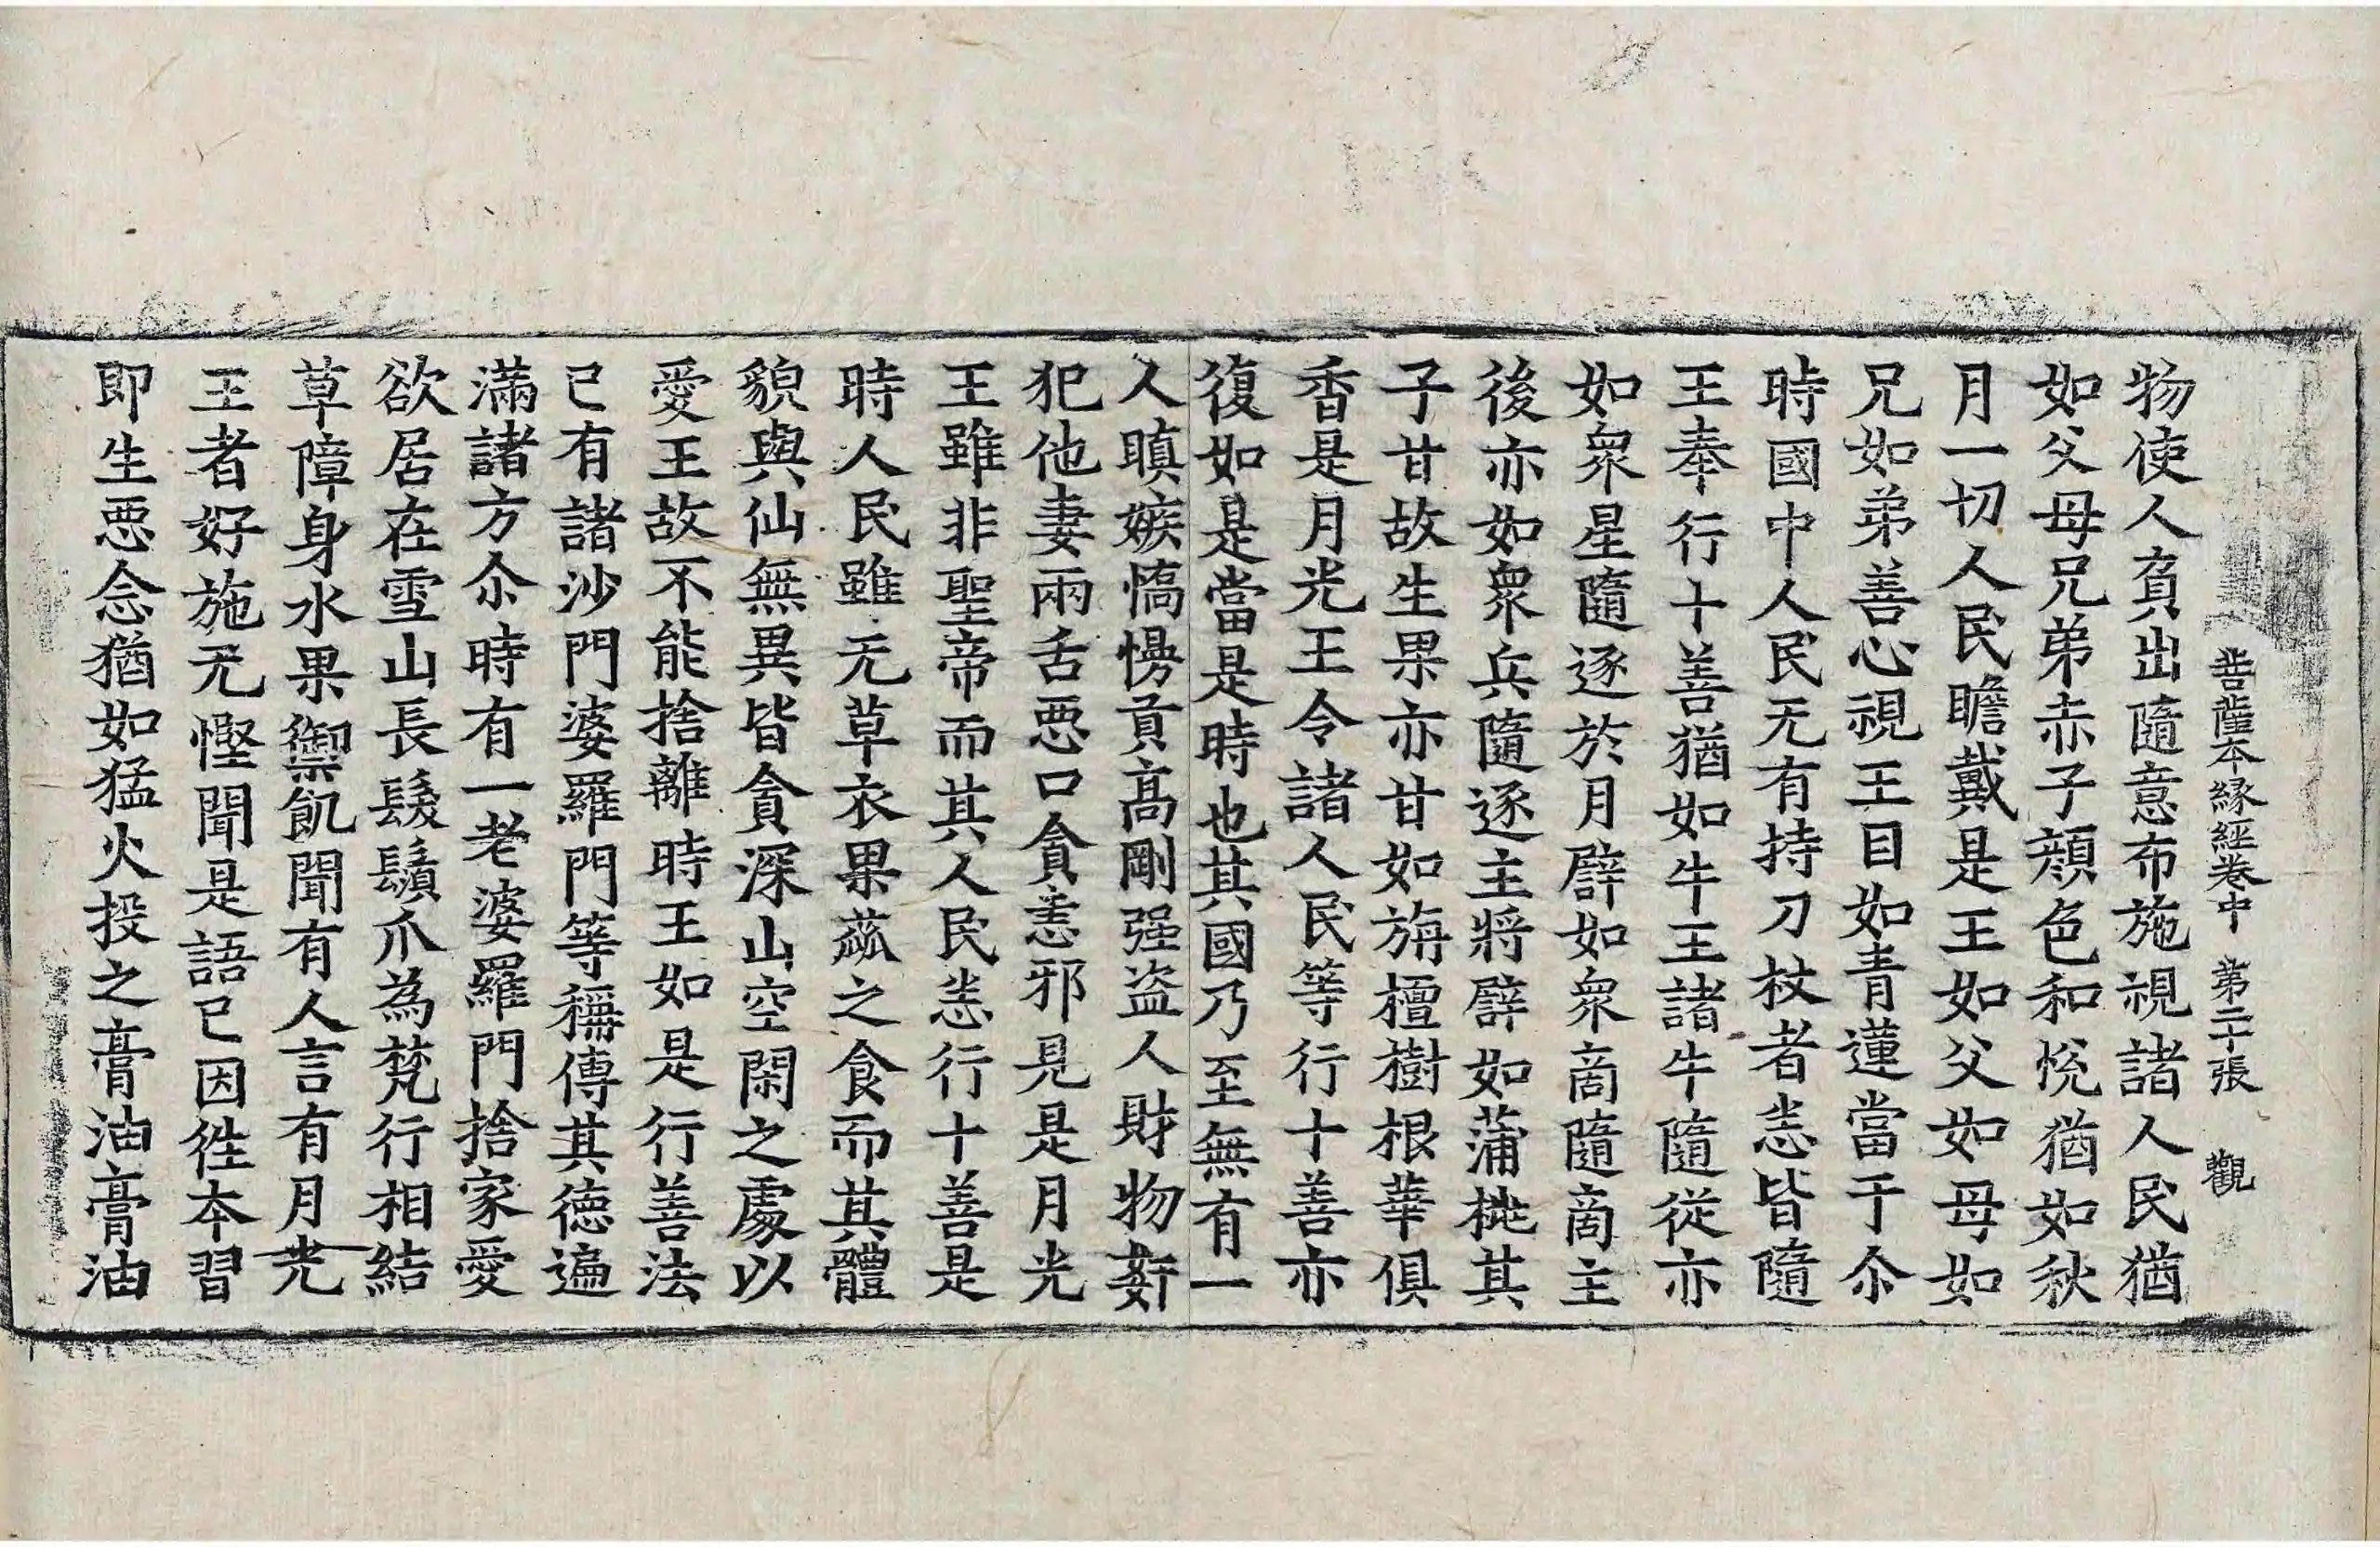 菩薩本緣經卷中 第二十張 觀
物使人負出隨意布施視諸人民猶
如父母兄弟赤子顏色和悅猶如秋
月一切人民瞻戴是王如父如母如
兄如弟善心視王目如青蓮當于尒
時國中人民无有持刀杖者恙皆隨
王奉行十善猶如牛王諸牛隨從亦
如衆星隨逐於月譬如衆商隨商主
後亦如衆兵隨逐主將譬如蒲桃其
子甘故生果亦甘如旃檀樹根華俱
香是月光王令諸人民等行十善亦
復如是當是時也其國乃至無有一
人瞋嫉憍慢貢高剛强盜人財物姧
犯他妻兩舌惡口貪恚邪見是月光
王雖非聖帝而其人民恙行十善是
時人民雖无草衣果蓏之食而其體
貌與仙無異皆貪深山空閑之處以
愛王故不能捨離時王如是行善法
已有諸沙門婆羅門等稱傳其德遍
滿諸方尒時有一老婆羅門捨家愛
欲居在雪山長髮鬚爪為梵行相結
草障身水果禦飢聞有人言有月光
王者好施无慳聞是語已因徃本習
即生惡念猶如猛火投之膏油膏油